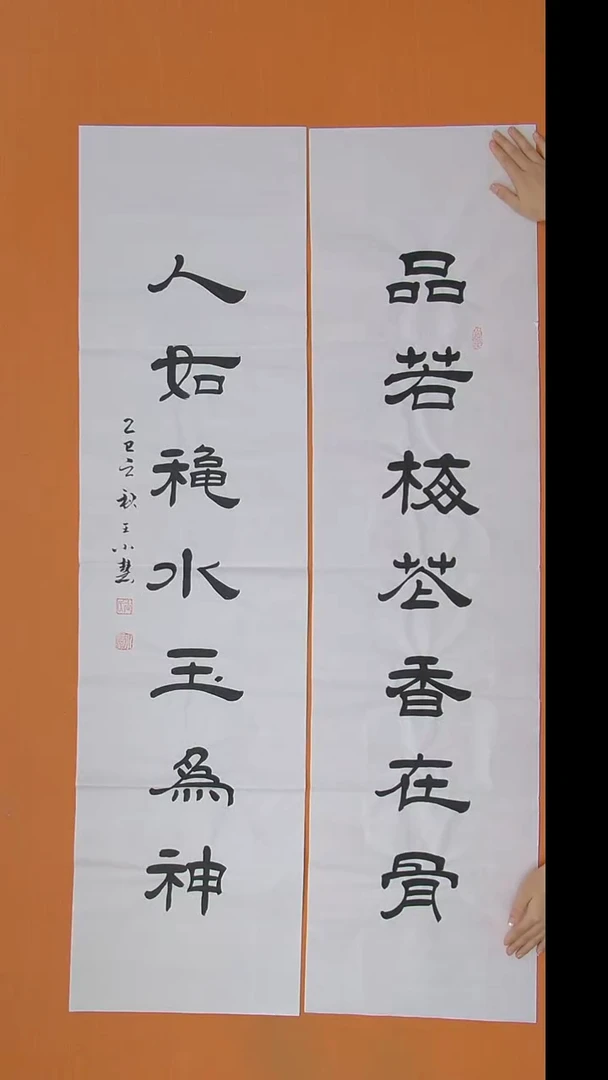 品若梅花香在骨
人如穐水玉為神
乙巳立秋王小慧